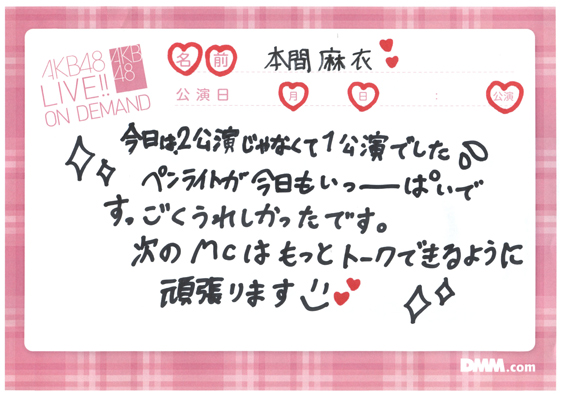 AKB48
LIVE!!
ON DEMAND
AKB
48
名前 本間麻衣
公演日 月 日 : 公演
今日は、2公演じゃなくて1公演でした
ペンライトが今日もいっーぱいで
すっごくうれしかったです。
次のMCはもっとトークできるように
頑張ります
DMM.com